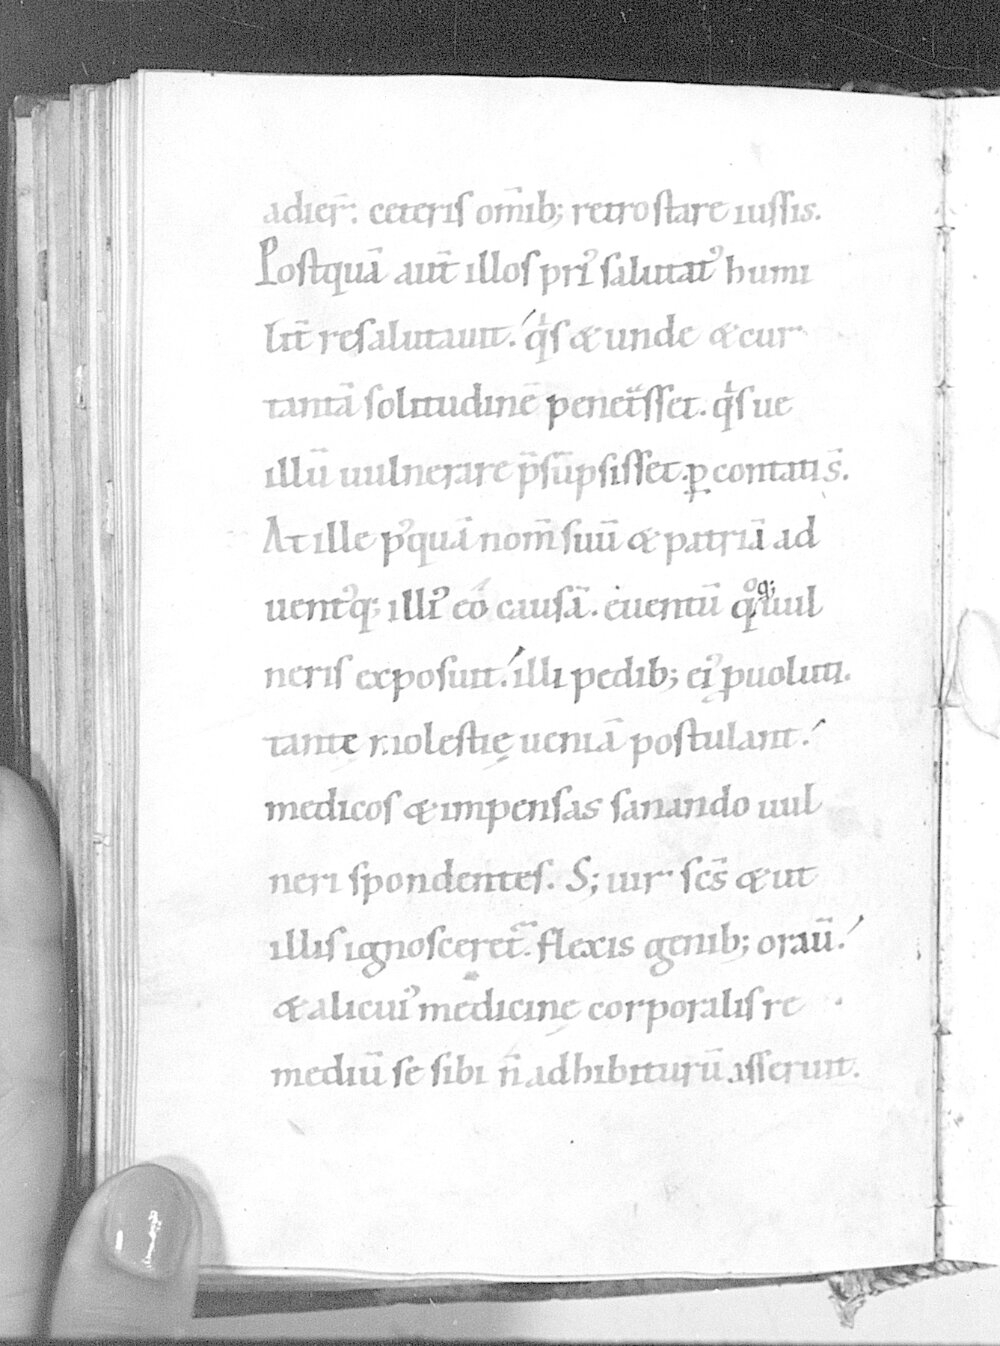 adier̄. ceteris om̄ib; retro stare iussis.
Postquā aut̄ illos pri᾽ salutat᾽ humi
lit̄ resalutauit. qͥs & unde & cur
tantā solitudinē penetͣsset. qͥs ue
illū uulnerare p̄sūpsisset. ꝑcontatis̄.
At ille p᾽quā nom̄ suū & patriā ad
uent᾽q; illi᾽ eō causā. euentū qͦq; uul
neris exposuit. illi pedib; ei᾽ ꝓuoluti.
tantę molestię ueniā postulant.
medicos & impensas sanando uul
neri spondentes. S; uir sc̄s & ut
illis ignosceret̄. flexis genib; oraū.
& alicui᾽ medicinę corporalis re
mediū se sibi n̄ adhibiturū asseruit.